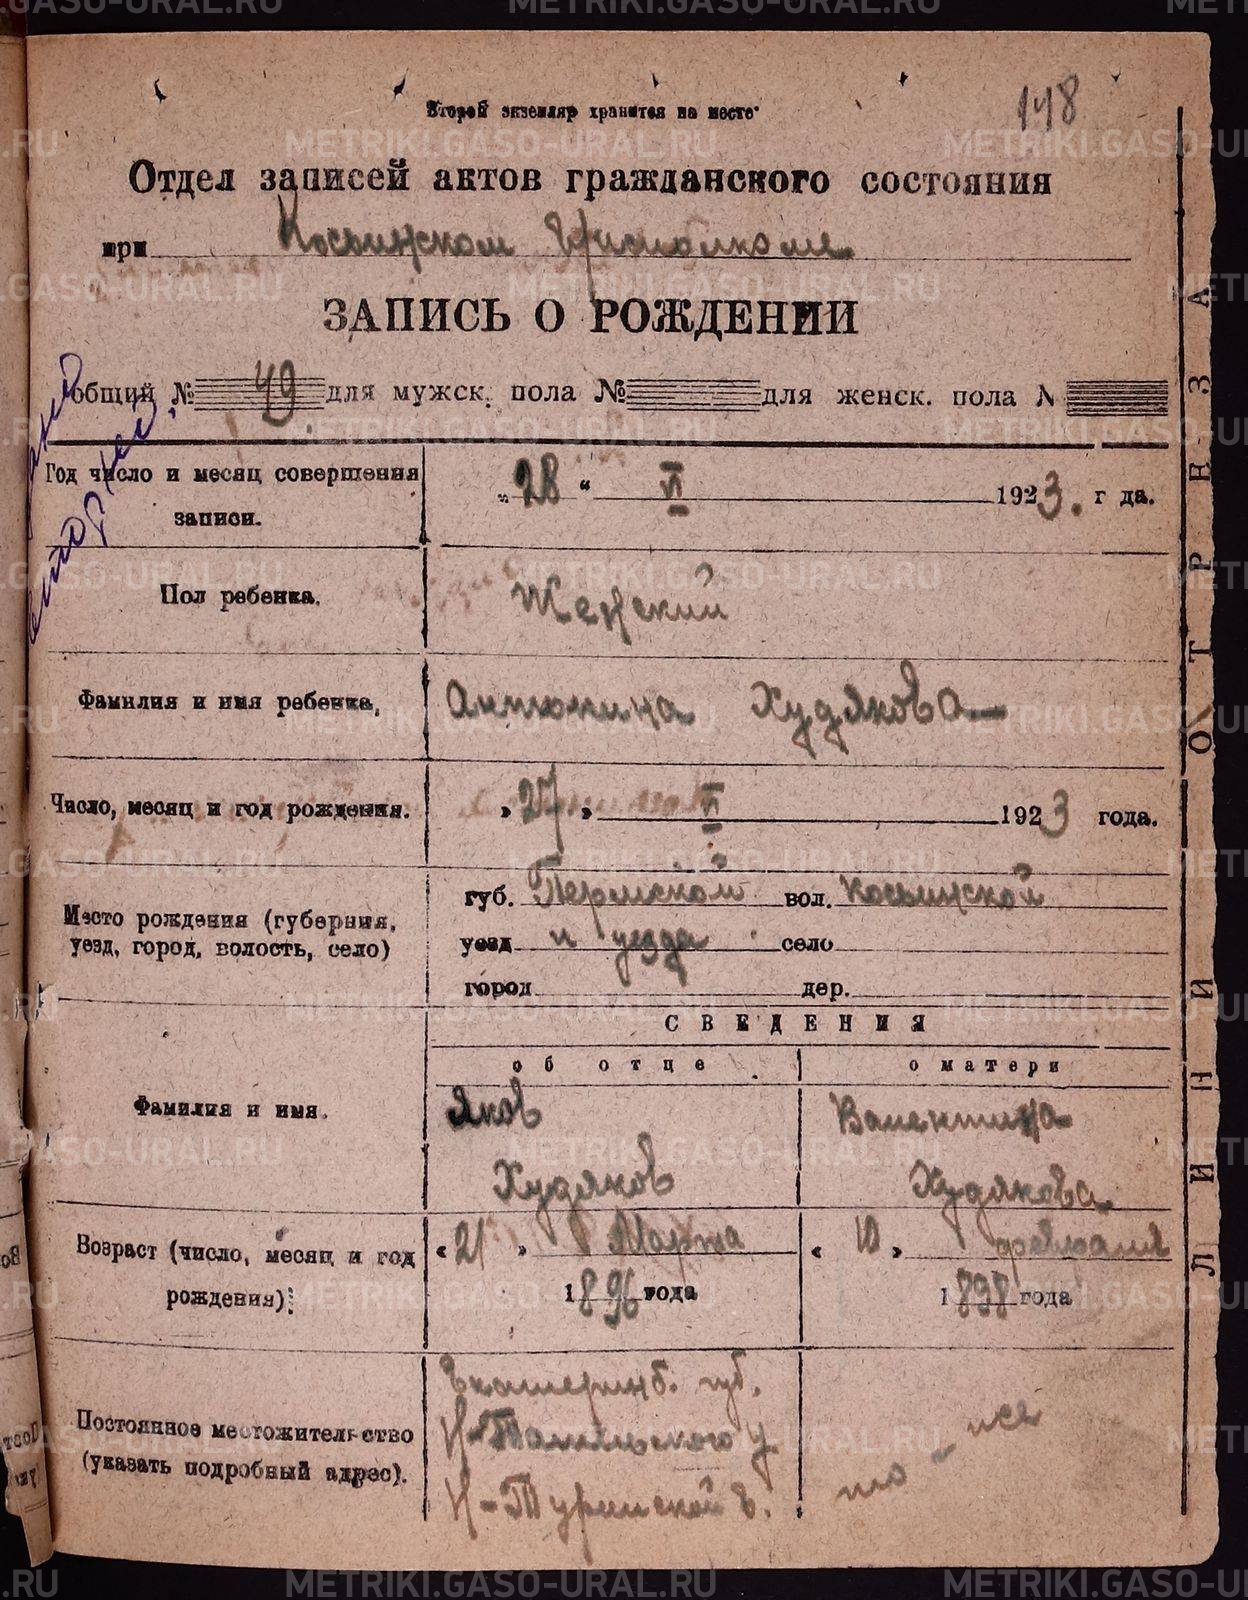 148
Второй экземляр хранится на месте
Отдел записей актов гражданского состояния
при Косьинском Исполкоме
ЗАПИСЬ О РОЖДЕНИИ
общий № 49 для мужск. пола № для женск. пола №
Год число и месяц совершения записи. „28“ VI 1923. г да.
Пол ребенка. Женский
Фамилия и имя ребенка, Антонина Худякова
Число, месяц и год рождения. „27„ VI 1923 года.
Место рождения (губерния, уезд, город, волость, село)
губ. Пермской вол. Косьинской
уезд и уезда село
город дер.
СВЕДЕНИЯ
об отце о матери
Фамилия и имя. Яков Валентина
Худяков Худякова
Возраст (число, месяц и год рождения): «21„ Марта «10„ февраля
1896 года 1898 года
Постоянное местожительство (указать подробный адрес).
Екатеринб. губ.
Н-Тагильского у
Н-Туринской в.
то-же
ЛИНИЯ ОТРЕЗА
METRIKI.GASO-URAL.RU